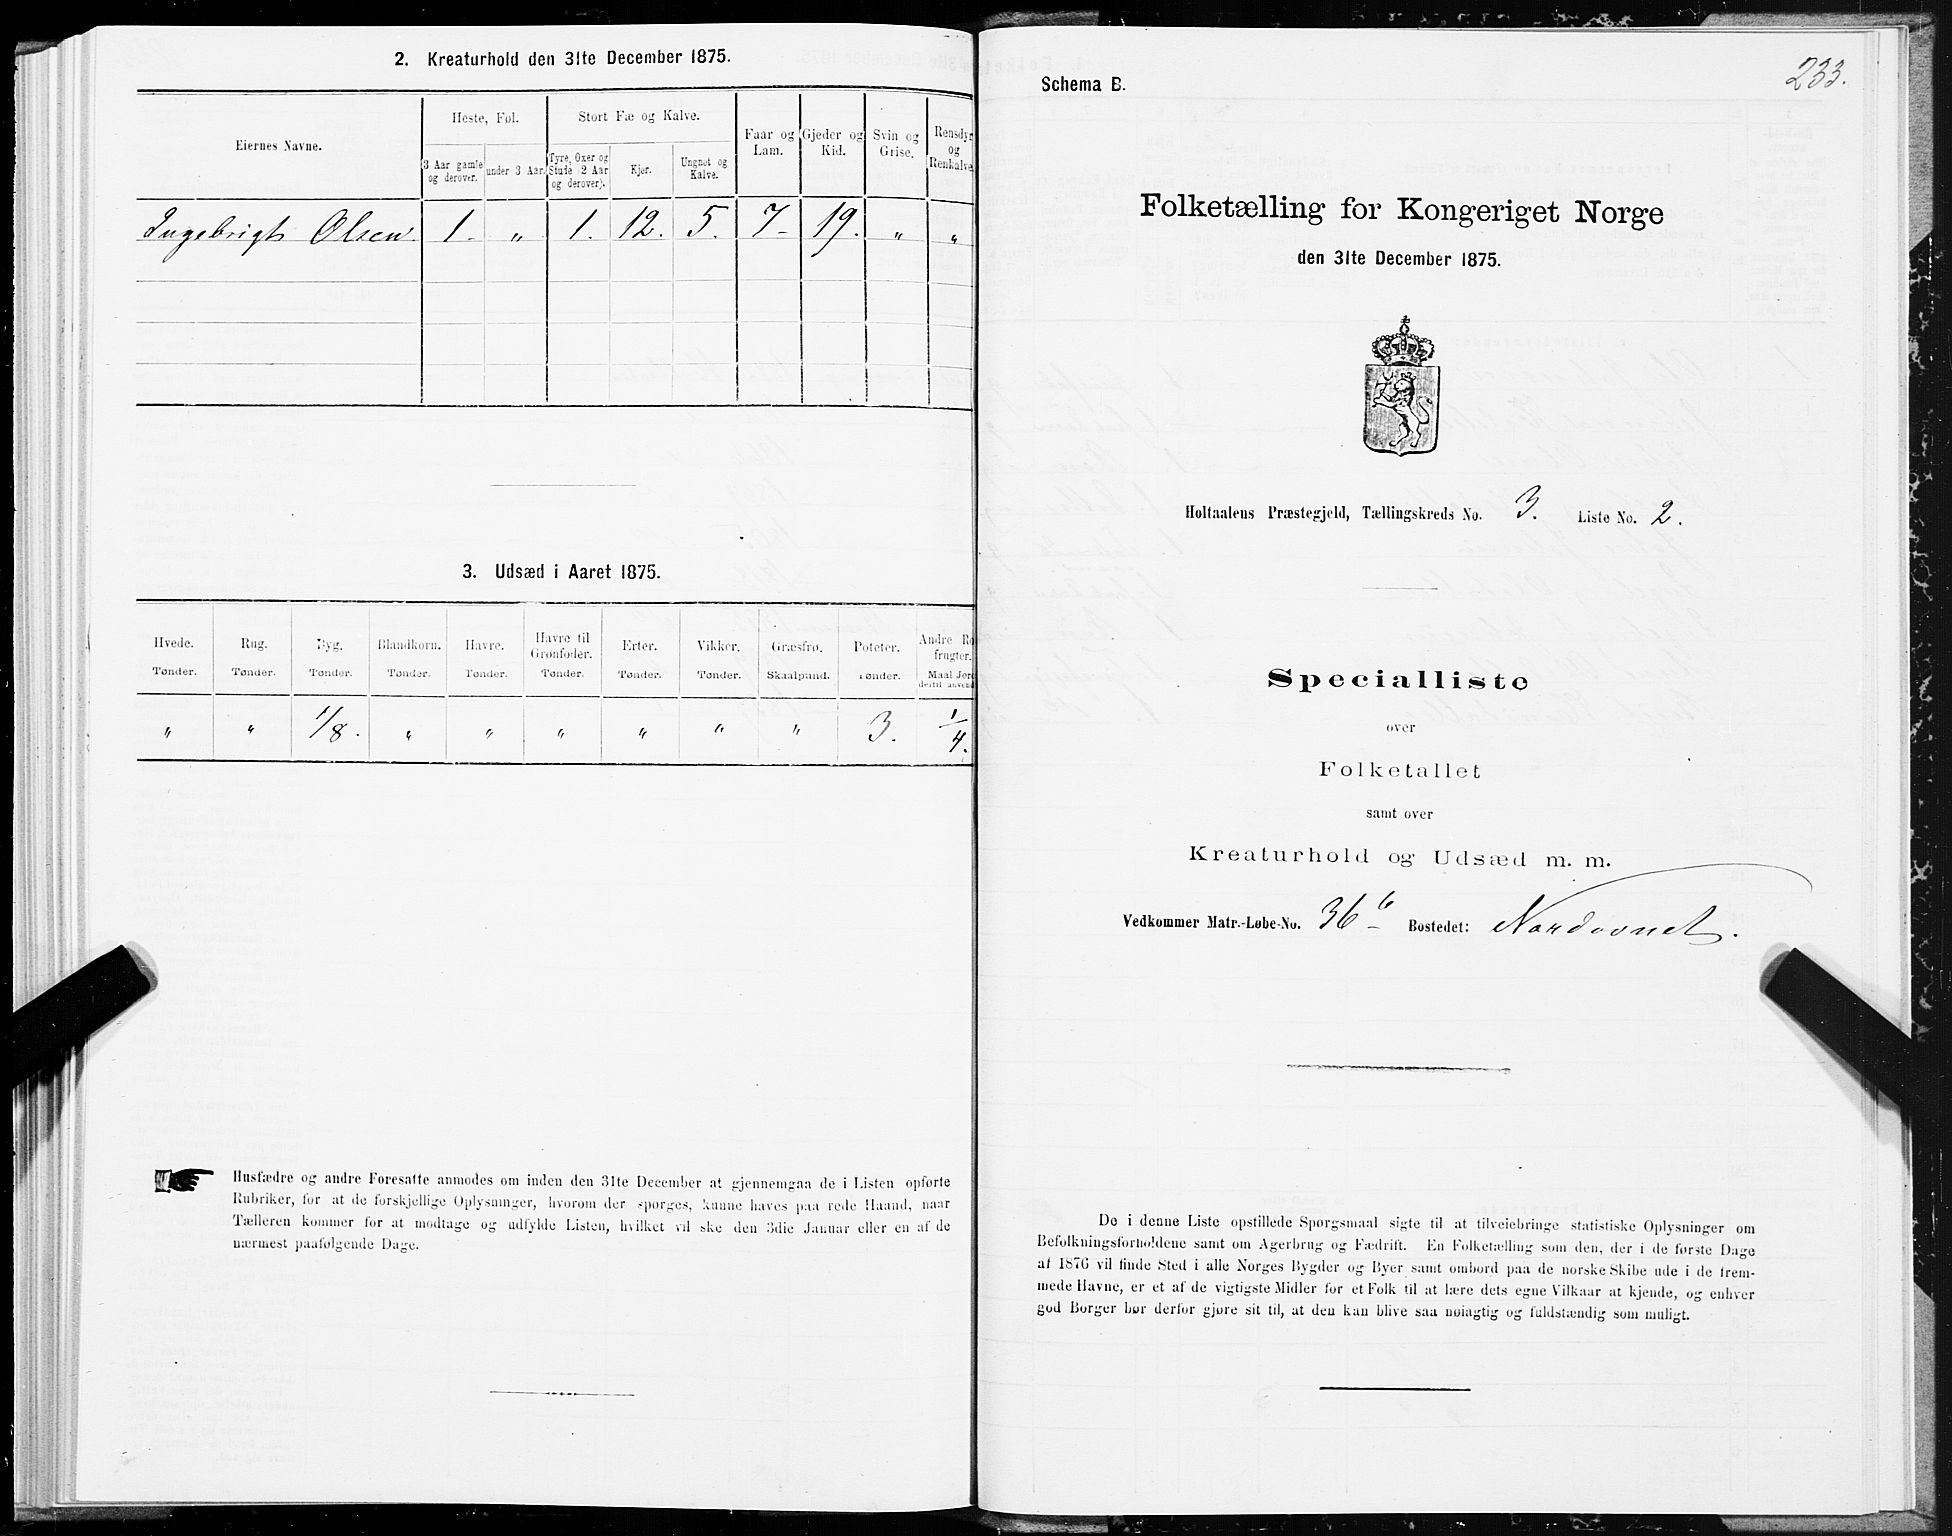 2. Kreaturhold den 31te December 1875.
Eiernes Navne.
Heste, Føl.
3 Aar gamle og derover.
under 3 Aar.
Stort Fæ og Kalve.
Tyre, Oxer og Stude (2 Aar og derover).
Kjør.
Ungnøt og Kalve.
Faar og Lam.
Gjeder og Kid.
Svin og Grise.
Rensdyr og Renkalve
Ingebrigt Olsen. 1 - „ 1. 12. 5. 7 - 19. „ „
3. Udsæd i Aaret 1875.
Hvede. Rug. Byg. Blandkorn. Havre. Havre til Grønfoder. Erter. Vikker. Græsfrø. Poteter. Andre Ro frugter.
Tønder. Tønder. Tønder. Tønder. Tønder. Tønder. Tønder. Tønder. Skaalpund. Tønder. Maal Jord dertil anvend
„ „ 1/8. „ „ „ „ „ „ 3. 1/4.
Husfædre og andre Foresatte anmodes om inden den 31te December at gjennemgaa de i Listen opførte
Rubriker, for at de forskjellige Oplysninger, hvorom der spørges, kunne haves paa rede Haand, naar
Tælleren kommer for at modtage og udfylde Listen, hvilket vil ske den 3die Januar eller en af de
nærmest paafølgende Dage.
233.
Schema B.
Folketælling for Kongeriget Norge
den 31te December 1875.
Holtaalens Præstegjeld, Tællingskreds No. 3. Liste No. 2.
Specialliste
over
Folketallet
samt over
Kreaturhold og Udsæd m. m.
Vedkommer Matr.-Løbe-No. 36 b - Bostedet: Nordaunet.
De i denne Liste opstillede Spørgsmaal sigte til at tilveiebringe statistiske Oplysninger om
Befolkningsforholdene samt om Agerbrug og Fædrift. En Folketælling som den, der i de første Dage
af 1876 vil finde Sted i alle Norges Bygder og Byer samt ombord paa de norske Skibe ude i de frem-
mede Havne, er et af de vigtigste Midler for et Folk til at lære dets egne Vilkaar at kjende, og enhver
god Borger bør derfor gjøre sit til, at den kan blive saa nøiagtig og fuldstændig som muligt.